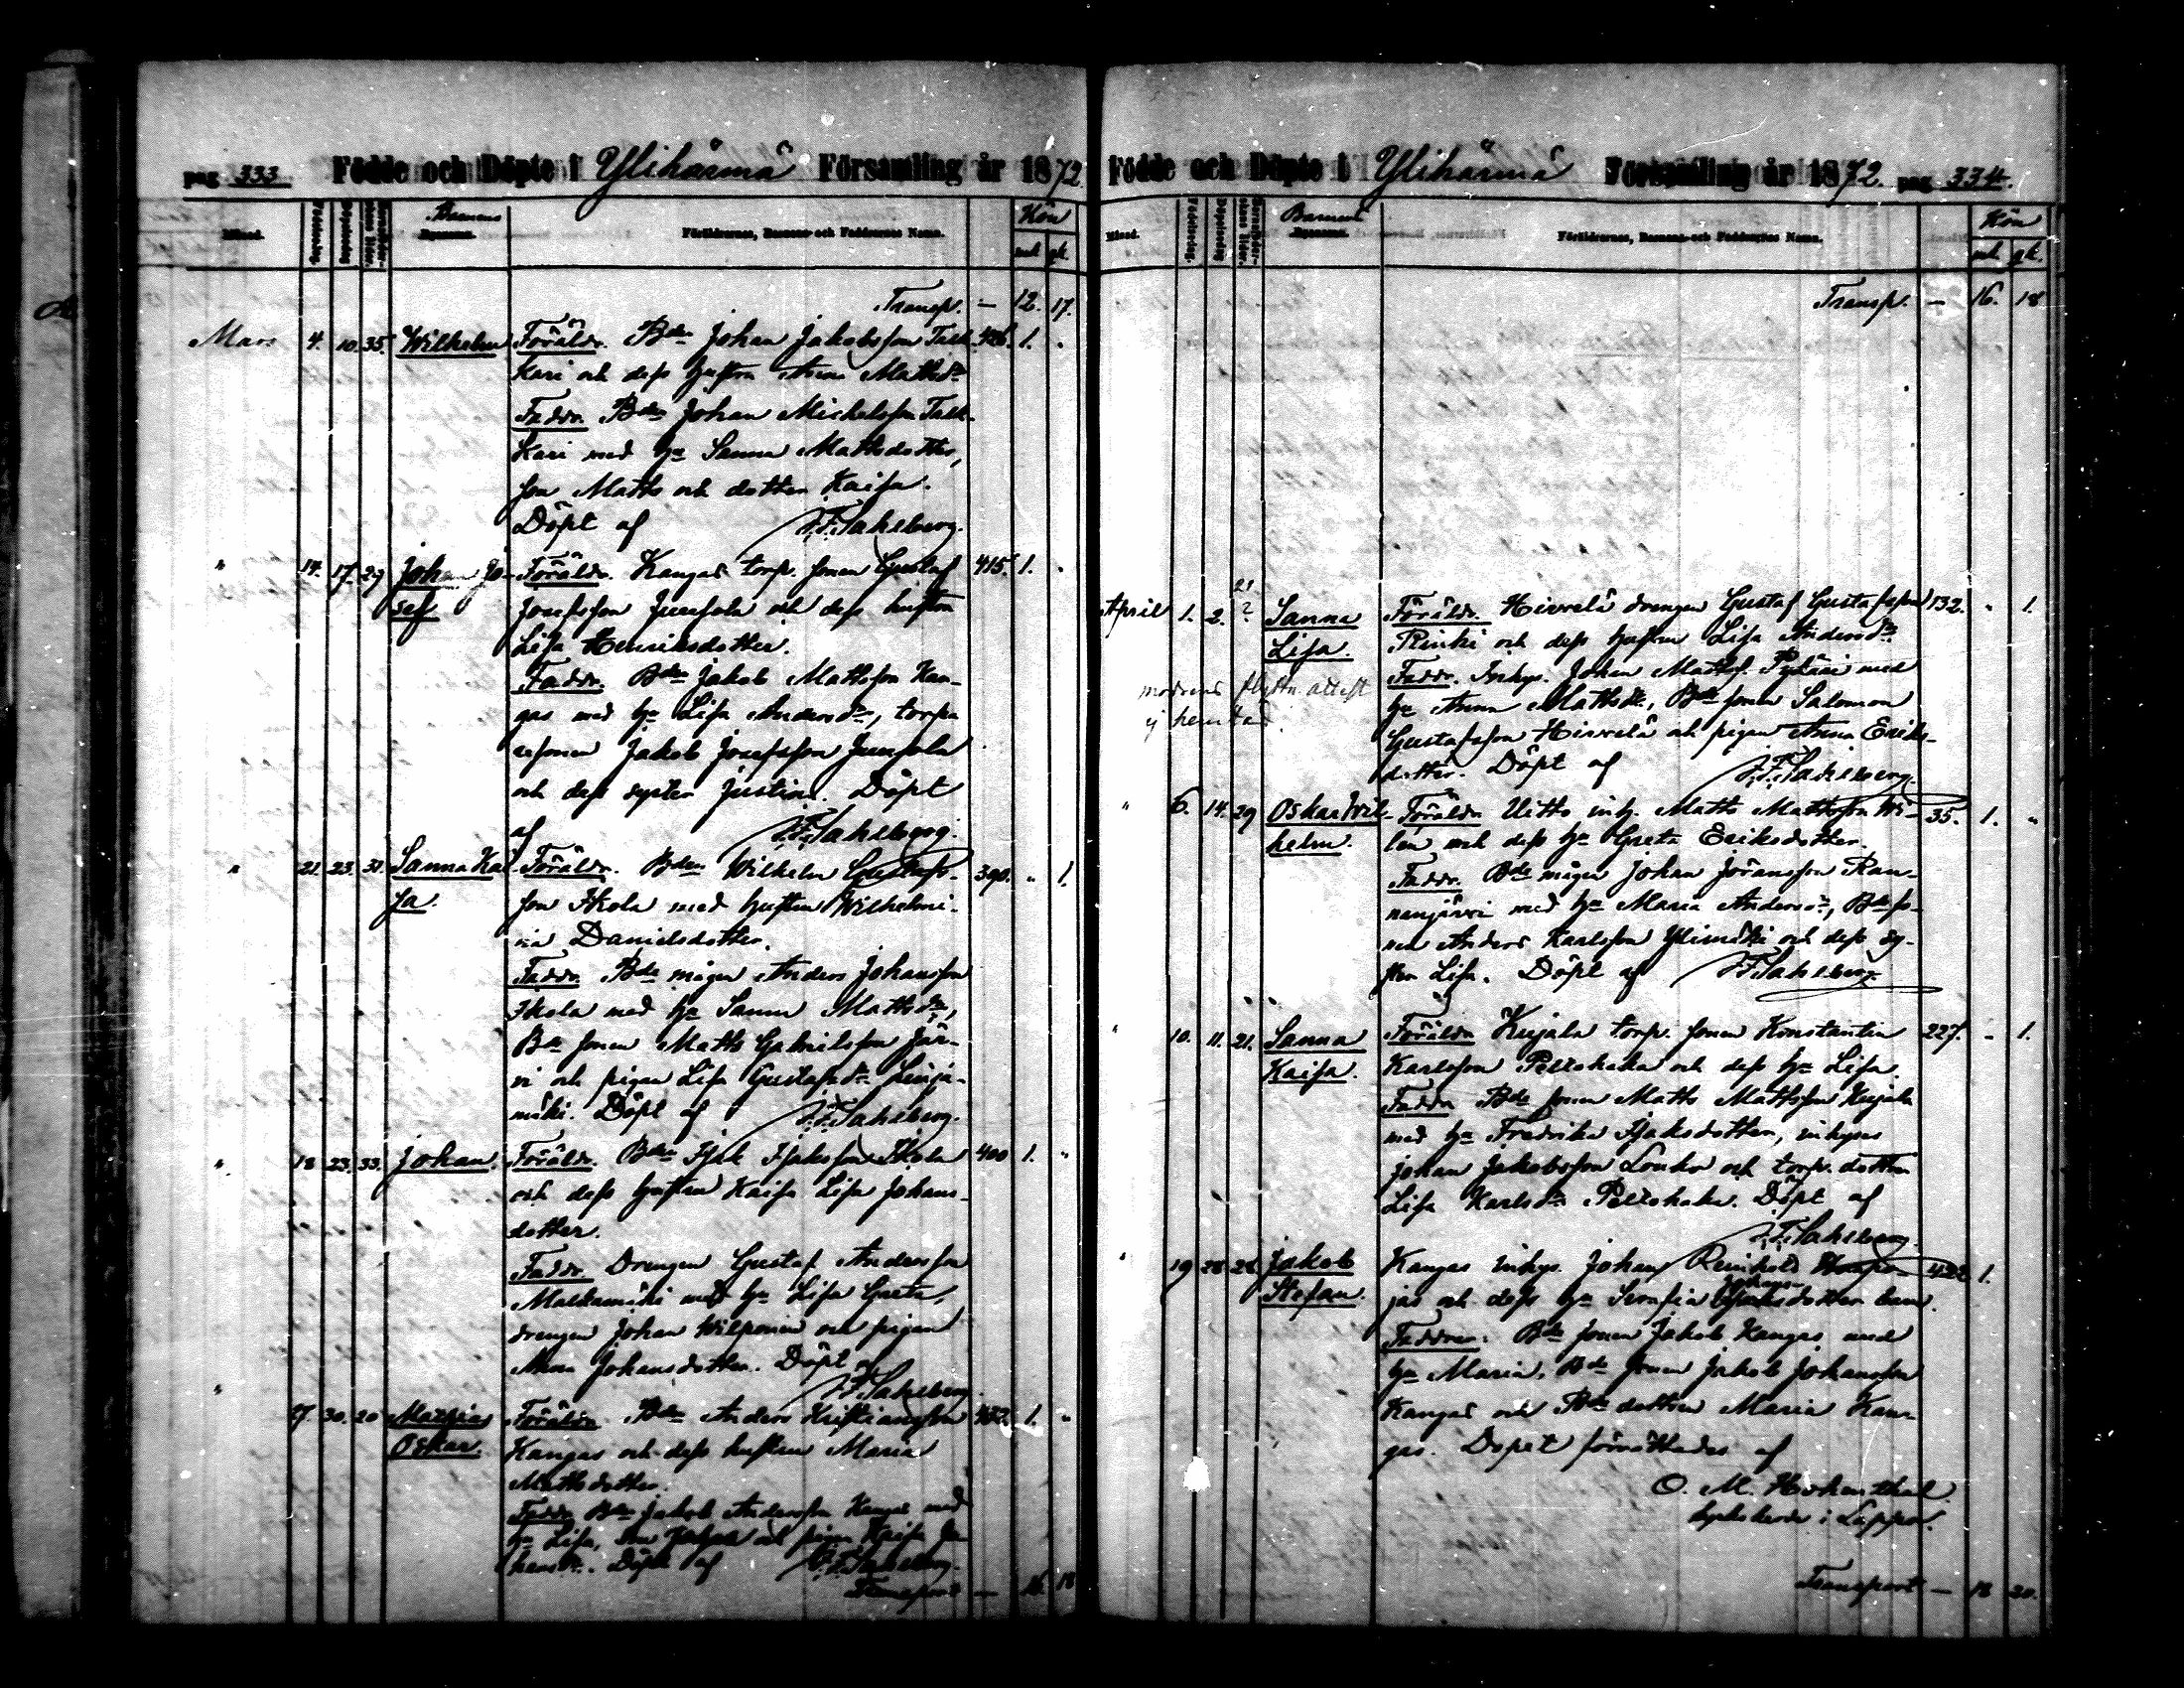 pag 333 Födde och Döpte i Ylihärmä Församling år 1872
Månad. Födelsedag. Döpelsedag. Barnens Kön
Föräldrarnes, Barnens och Faddrarnes Namn. mk qk.
Transp. — 12. 17.
Mars 4. 10. 35. Wilhelm Föräldr. Bdn Johan Jakobsson Talk- 426. 1. "
kari och dess hustru Anna Mattsdr
Faddr. Bdn Johan Michelsson Talk-
kari med hu Sanna Mattsdotter,
son Matts och dotter Kaisa.
Döpt af J.F. Sahlberg.
" 14. 17. 29 Johan Jo- Föräldr. Kangas torp. sonen Gustaf 415. 1. "
sef Josefsson Junsola och dess hustru
Lisa Henriksdotter.
Faddr. Bdn Jakob Mattsson Kan-
gas med hu Lisa Andersdr, torpa
resonen Jakob Josefsson Junsola
och dess syster Justina. Döpt
af J.F. Sahlberg.
" 21. 23. 31. Sanna Kai- Föräldr. Bdn Wilhelm Gustafs- 390. " 1.
sa. son Ikola med hustru Wilhelmi-
na Danielsdotter.
Faddr. Bde mågen Anders Johansson
Ikola med hu Sanna Mattsdr,
Bde sonen Matts Gabrielsson Jär-
vi och pigan Lisa Gustafsdr
mäki. Döpt af J.F. Sahlberg.
" 18 23. 33. Johan. Föräldr. Bdn Isak Isaksson Ikola 400 1. "
och dess hustru Kaisa Lisa Johans-
dotter.
Faddr. Drengen Gustaf Andersson
med hu Lisa Greta,
drengen Johan och pigan
Johansdotter. Döpt af
J.F. Sahlberg.
" 17. 30. 20 Mathias Föräldr. Bdn Anders Kristiansson 432. 1. "
Oskar. Kangas och dess hustru Maria
Mattsdotter.
Faddr. Bdn Jakob Andersson Kangas med
hu Lisa, son och pigan Kaisa Jo-
hansdr. Döpt af J.F. Sahlberg.
Transport — 16 18
Födde och Döpte i Ylihärmä Församling år 1872. pag 334.
Månad. Födelsedag. Döpelsedag Barnens Kön
Föräldrarnes, Barnens och Faddrarnes Namn. mk qk.
Transp. — 16. 18
21
April 1. 2. ? Sanna Föräldr. Hirvelä drengen Gustaf Gustafsson 132. " 1.
Lisa. Rinki och dess hustru Lisa Andersdr
Faddr. Inhys. Johan Mattss. med
modrens flyttn. attest hu Anna Mattsdr, Bde sonen Salomon
ej hemtad Gustafsson Hirvelä och pigan Anna Eriks-
dotter. Döpt af J.F. Sahlberg.
" 6. 14. 29 Oskar Wil- Föräldr. Uitto inh. Matts Mattsson Wi- 35. 1. "
helm. len och dess hu Greta Eriksdotter.
Faddr. Bde mågen Johan Jöransson Ran-
nanjärvi med hu Maria Andersdr, Bde so-
nen Anders Karlsson Ylimäki och dess sy-
ster Lisa. Döpt af J.F. Sahlberg.
" 10. 11. 21. Sanna Föräldr. Kujala torp. sonen Konstantin 227. " 1.
Kaisa. Karlsson Peltohaka och dess hu Lisa.
Faddr. Bde sonen Matts Mattsson Kujala
med hu Fredrika Isaksdotter, inhyses
Johan Jakobsson Louko och torp. dottren
Lisa Karlsdr Peltohaka. Döpt af
J.F. Sahlberg.
" 19 28 28 Jakob Kangas inhys. Johan Reinhold 422 1.
Johans-
Stefan. jas och dess hu Serafia dotter barn.
Faddrar. Bde sonen Jakob Kangas med
hu Maria, Bde sonen Jakob Johansson
Kangas och Bde dottren Maria Kan-
gas. Dopet förrättades af
O. M. Hohenthal
i Lappo.
Transport — 18 20.